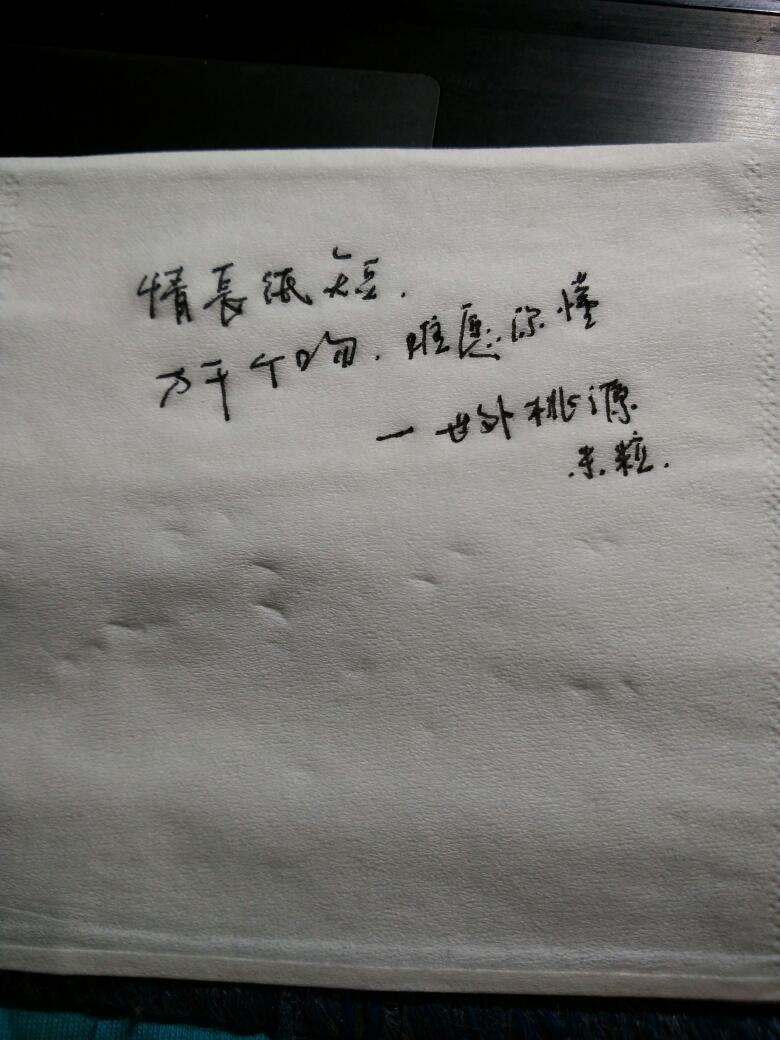 情長纸短.
万千个吻.唯愿你懂
一世外桃源
米粒.